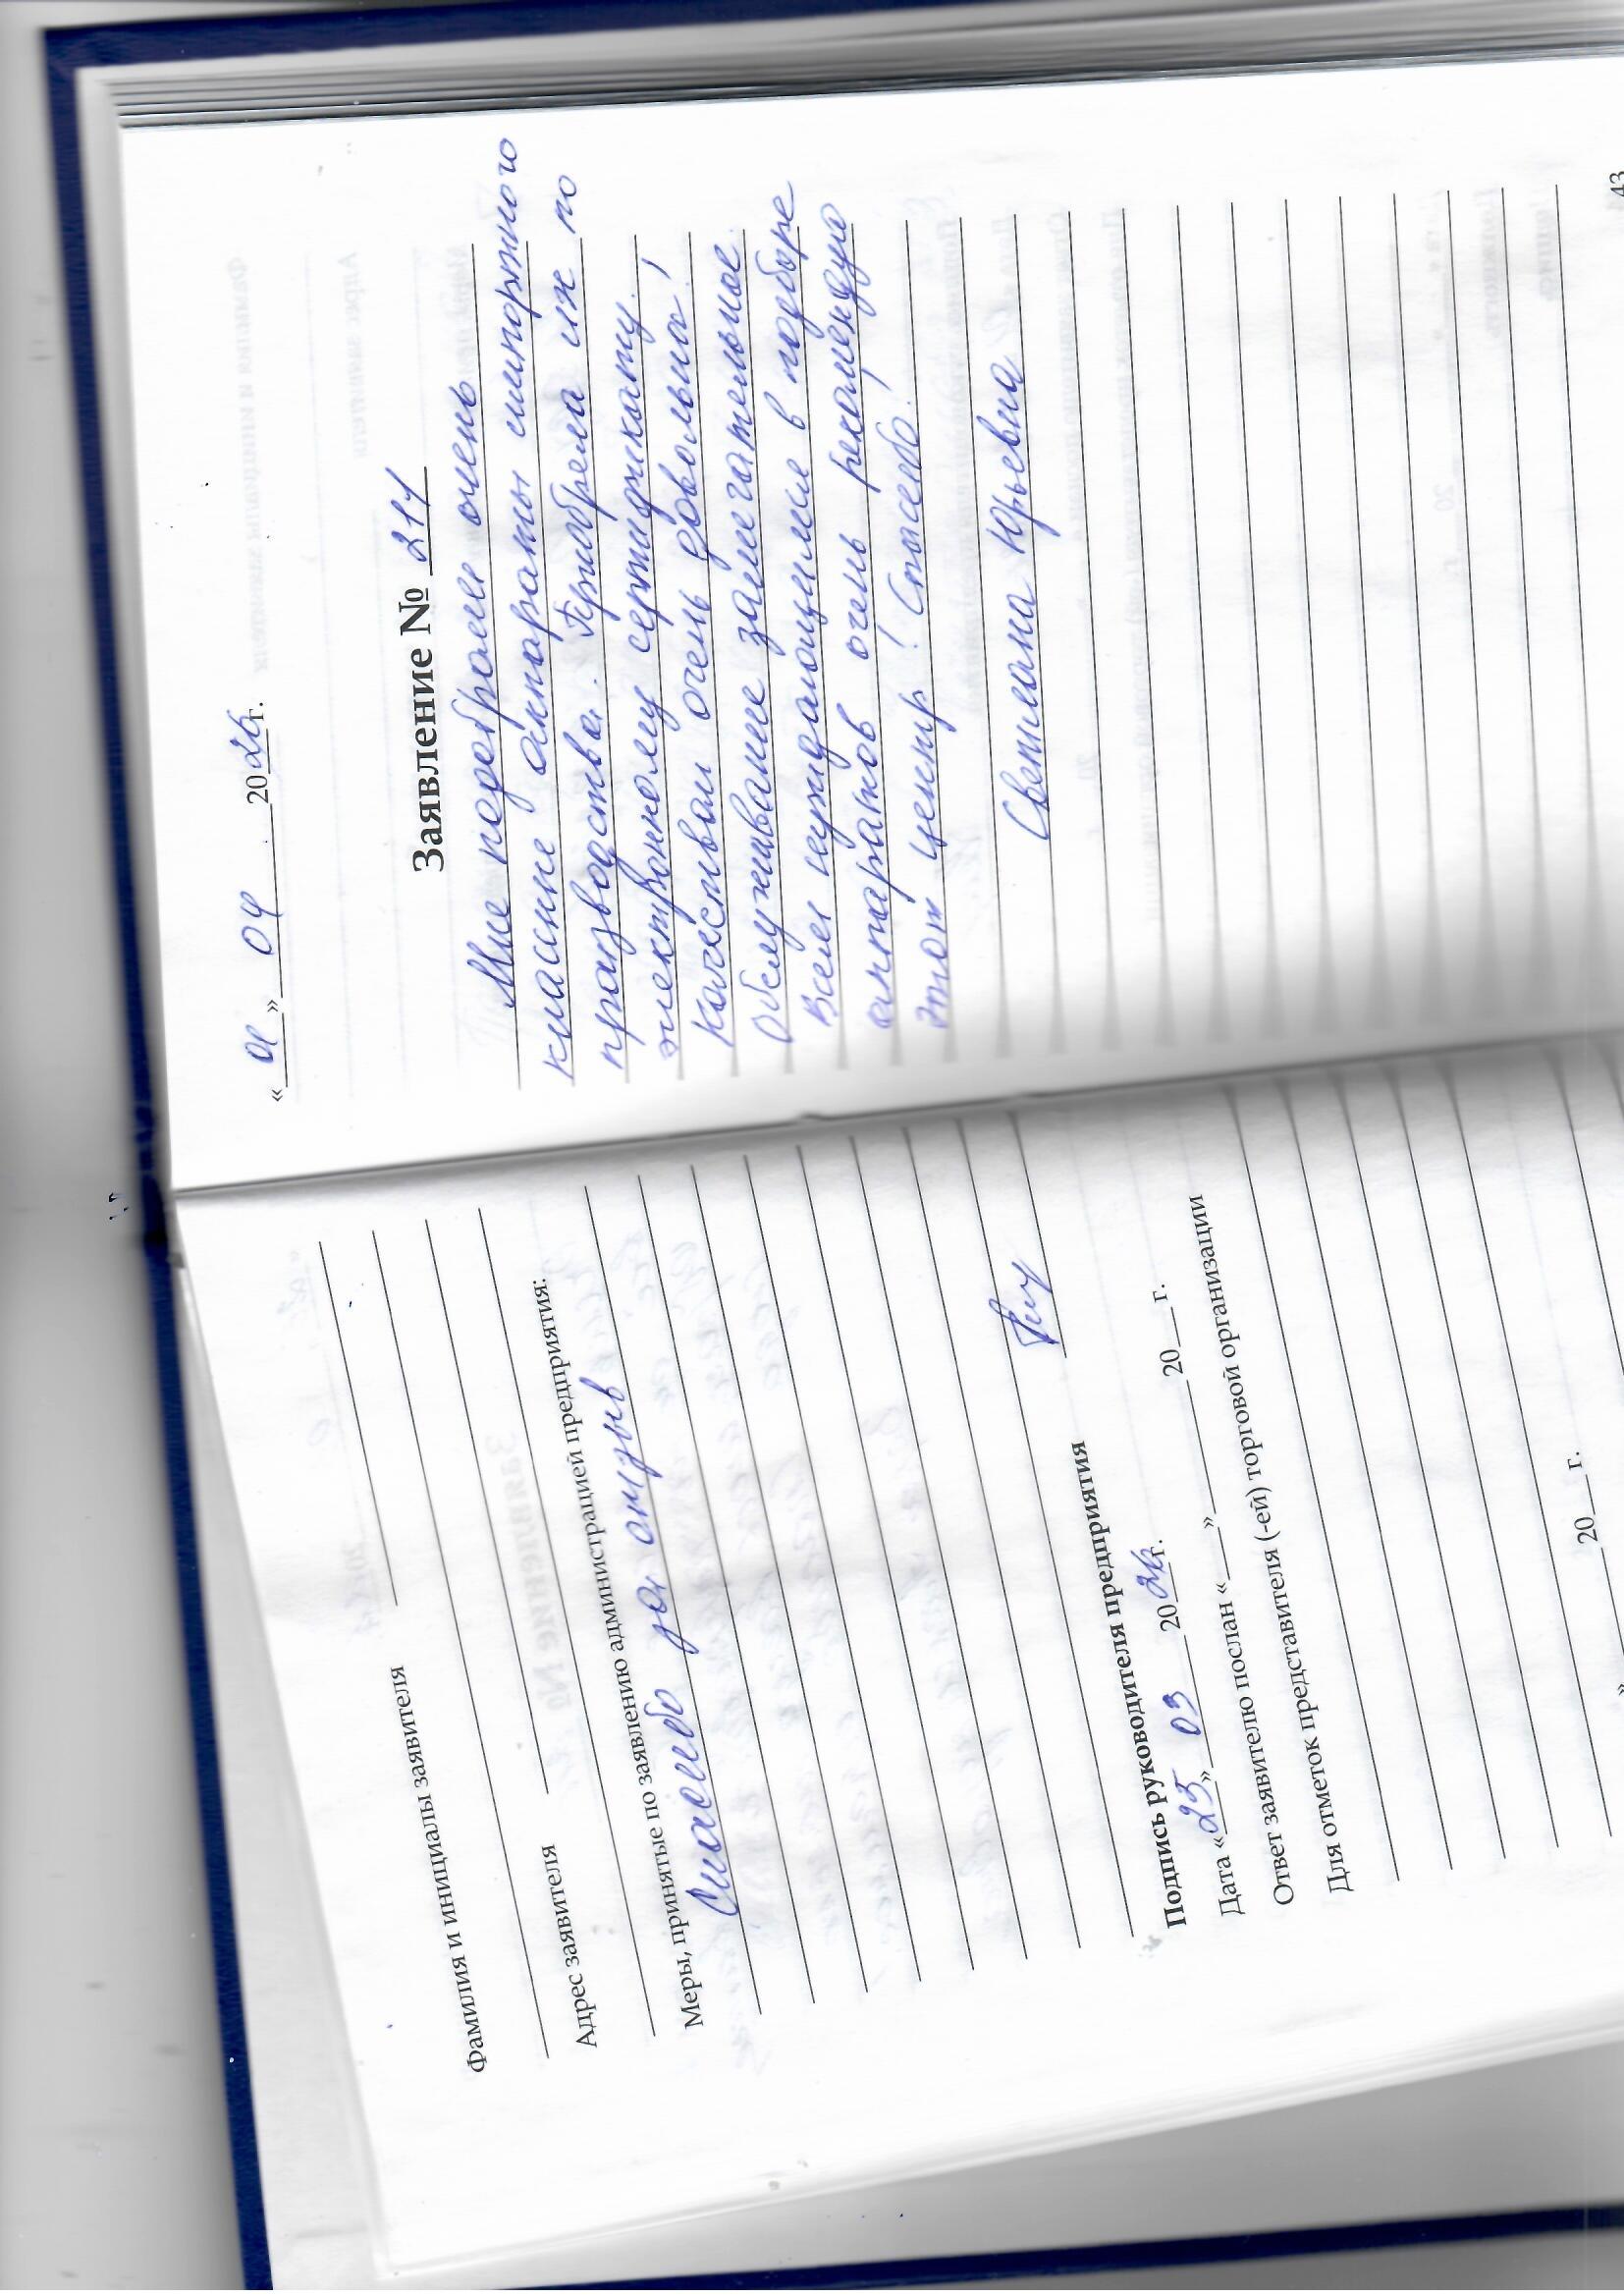 Фамилия и инициалы заявителя
Адрес заявителя
Меры, принятые по заявлению администрацией предприятия:
Спасибо за отзыв
Подпись руководителя предприятия
Дата «25» 03 2026г.
Ответ заявителю послан «___» 20__г.
Для отметок представителя (-ей) торговой организации
» 20__г.
«01» 04 2026г.
Заявление № 211
Мне подобрали очень
классные аппараты импортного
производства. Приобрела их по
электронному сертификату.
Качеством очень довольна!
Обслуживание замечательное.
Всем нуждающимся в подборе
аппаратов очень рекомендую
этот центр! Спасибо!
Светлана Юрьевна
43